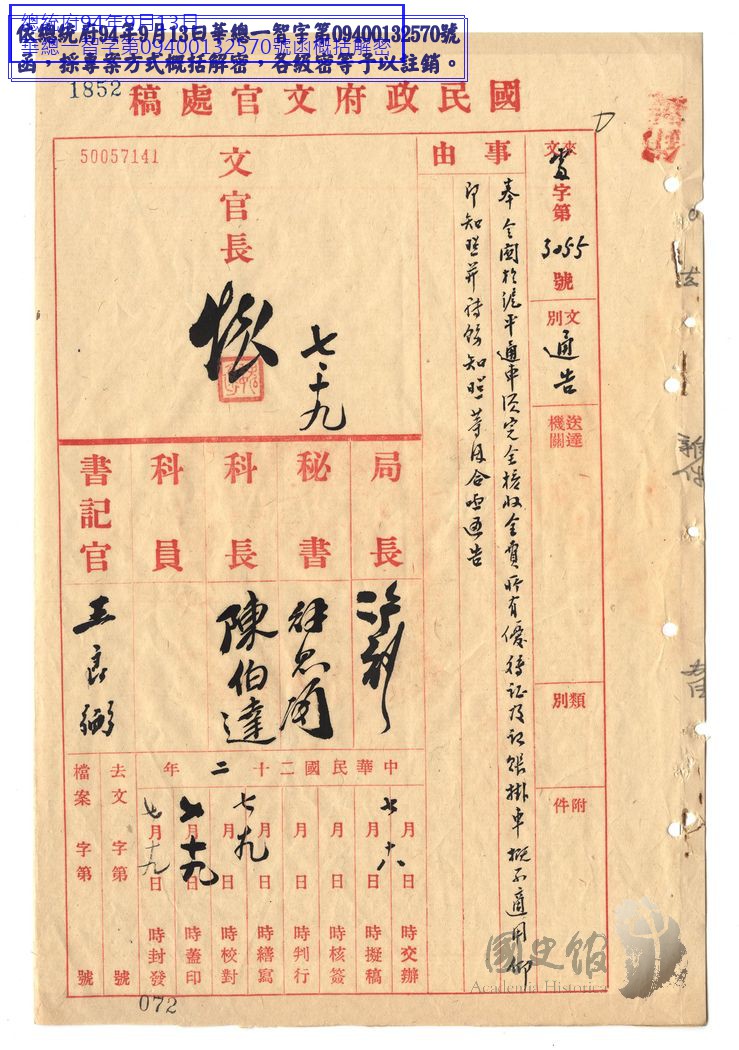 總統府94年9月13日
華總一智字第09400132570號函概括解密
依總統府94年9月13日華總一智字第09400132570號
函，採專案方式概括解密，各級密等予以註銷。
1852
國民政府文官處稿
50057141
來文
字第3055號
文別
通告
送達機關
類別
附件
事由
奉 令關於滬平通車須完全核收全費所有優待证及記賬掛車概不適用仰
即知照并待飭知照等因合亟通告
文官長
七、十九
局長
秘書
科長
陳伯達
科員
書記官
王良弼
中華民國二十二年
七月十八日 時交辦
月 日 時擬稿
月 日 時核簽
月 日 時判行
七月九日 時繕寫
月 日 時校對
七月十九日 時蓋印
七月十九日 時封發
去文 字第 號
檔案 字第 號
072
國史館
Academia Historica